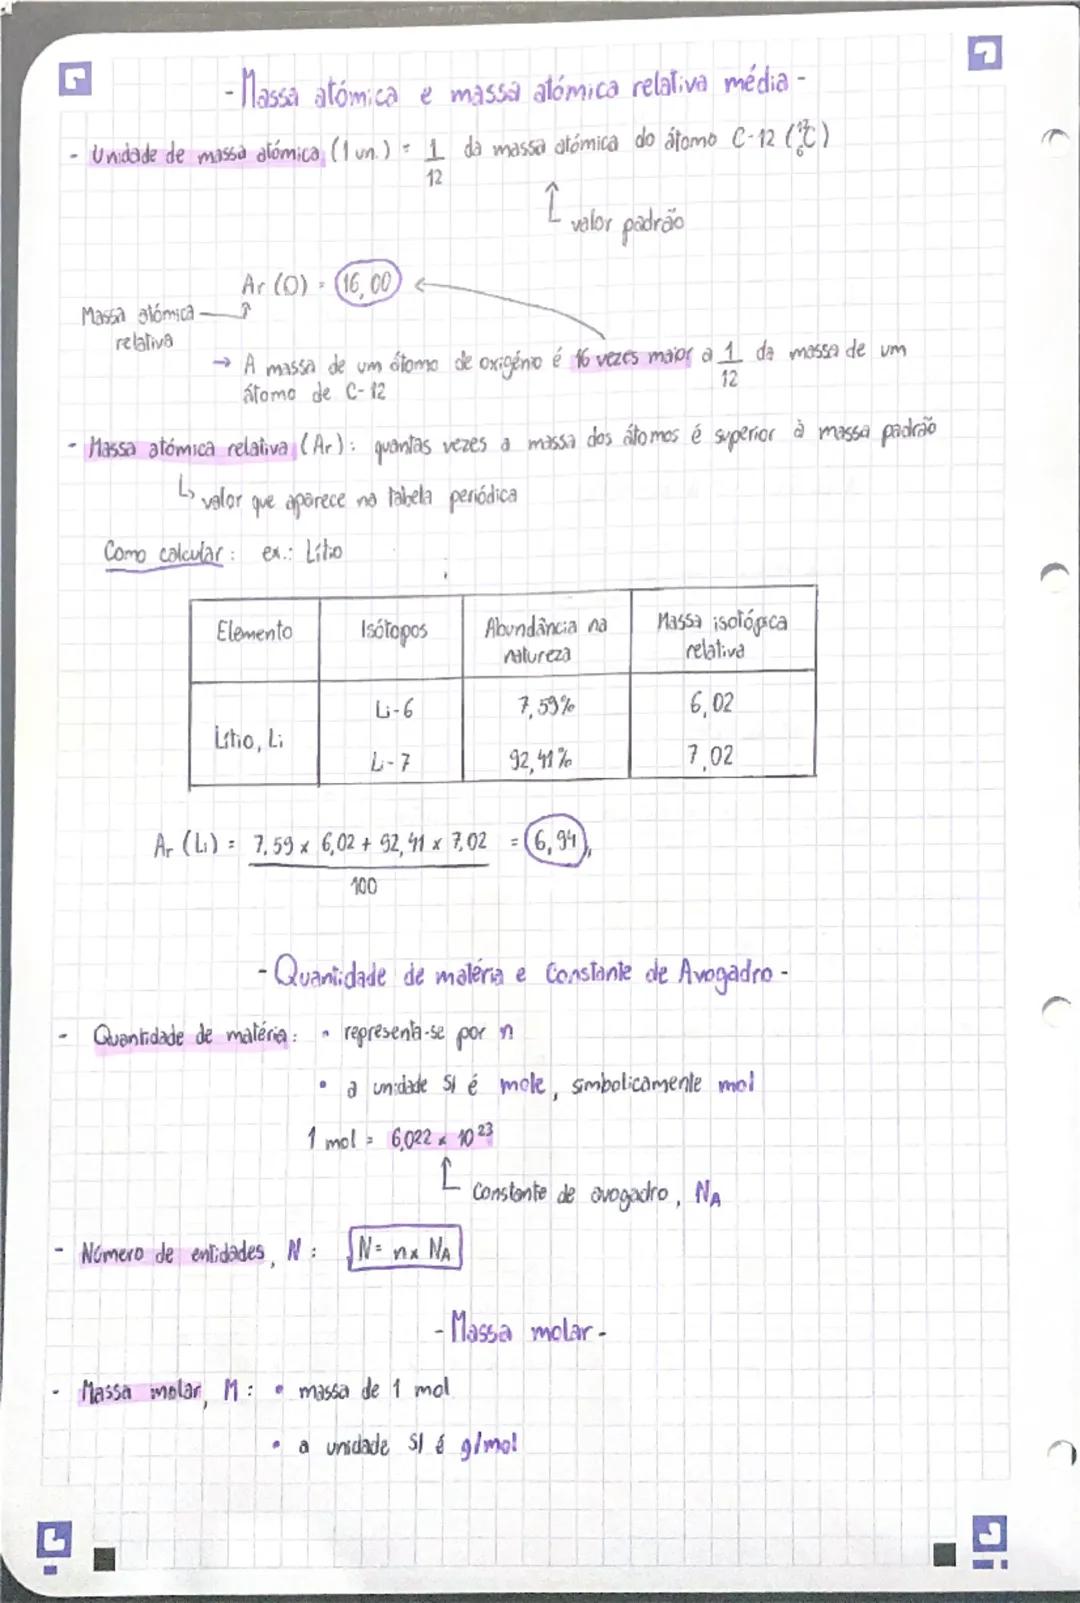 - Massa atómica e massa atómica relativa média -
- Unidade de massa atómica (1 un.) = 1/12 da massa atómica do átomo C-12 (¹²₆C)
valor padrão
Ar (O) = 16,00
Massa atómica relativa
→ A massa de um átomo de oxigénio é 16 vezes maior a 1/12 da massa de um
átomo de C-12
- Massa atómica relativa (Ar): quantas vezes a massa dos átomos é superior à massa padrão
↳ valor que aparece na tabela periódica
Como calcular: ex.: Lítio
Elemento Isótopos Abundância na natureza Massa isotópica relativa
Lítio, Li
Li-6 7,59% 6,02
Li-7 92,41% 7,02
Ar (Li) = 7,59 x 6,02 + 92,41 x 7,02 / 100 = 6,94
- Quantidade de matéria e Constante de Avogadro -
- Quantidade de matéria: • representa-se por n
• a unidade SI é mole, simbolicamente mol
1 mol = 6,022 x 10²³
Constante de avogadro, NA
- Número de entidades, N: N = n x NA
- Massa molar -
- Massa molar, M: • massa de 1 mol
• a unidade SI é g/mol